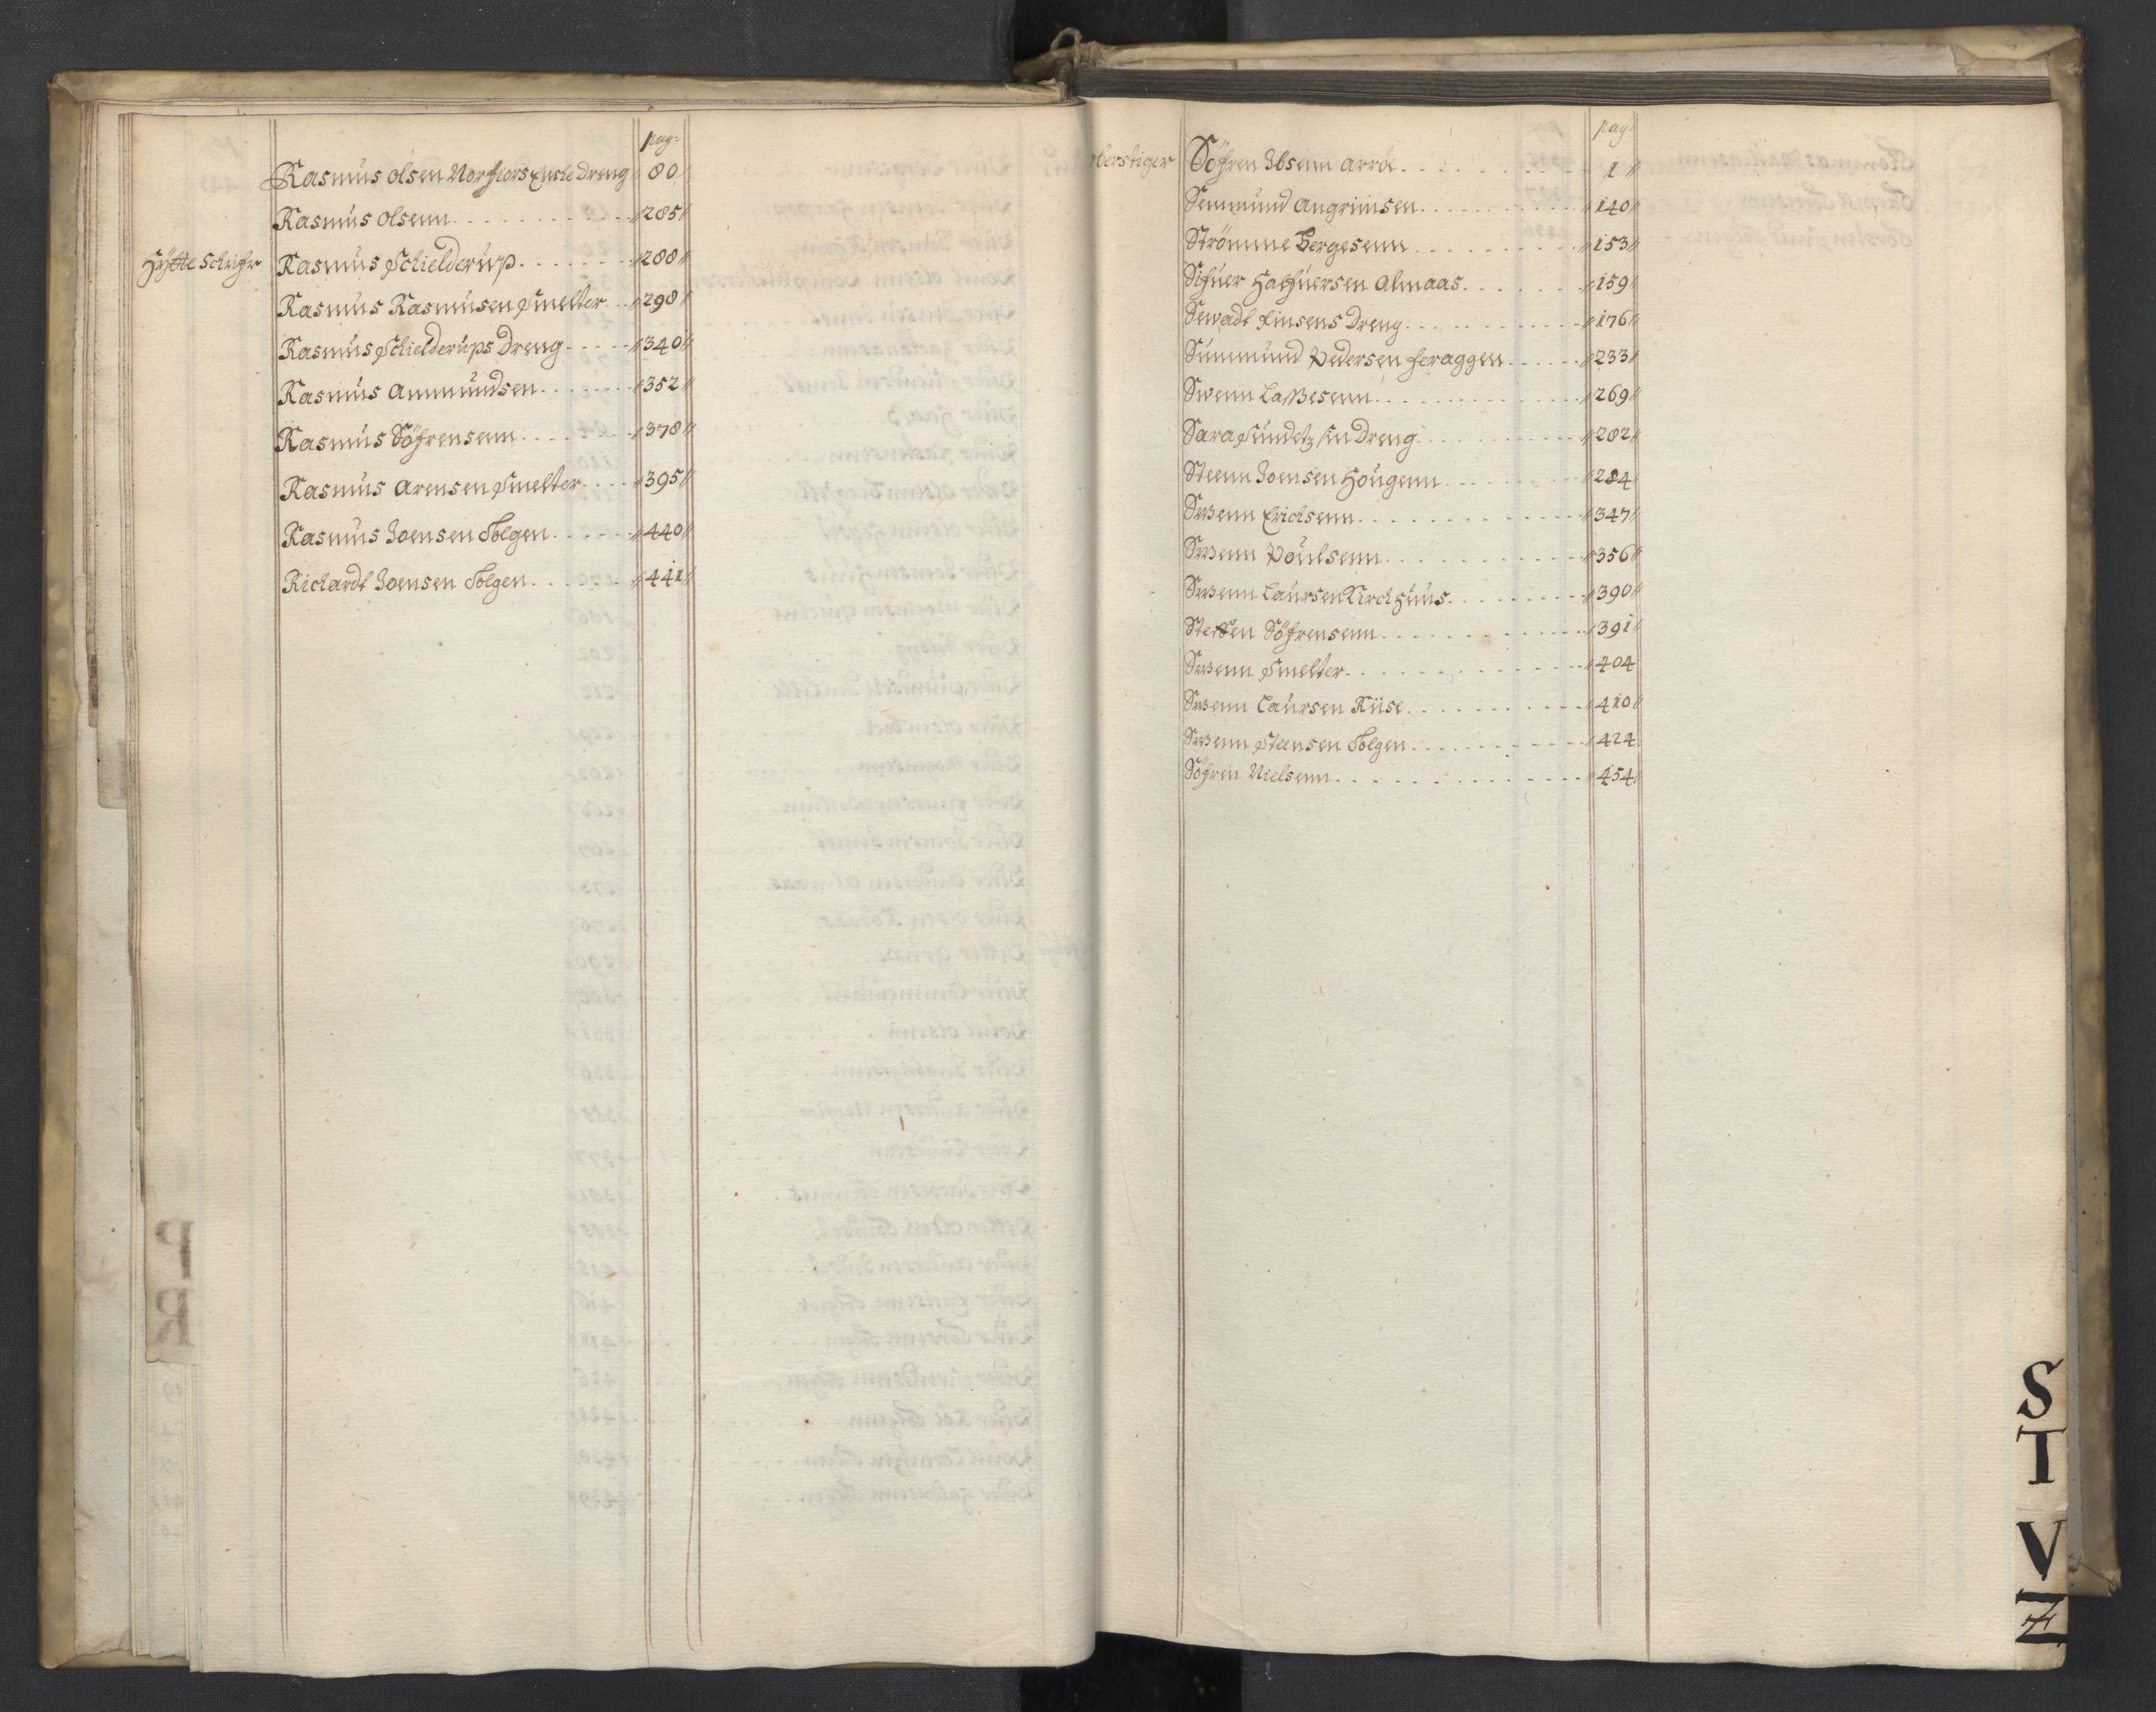 pag:
Rasmus Olsen Norfiors Encke Dreng 80
Rasmus Olsenn 285
Hytte Schrifr Rasmus Schielderup 288
Rasmus Rasmusen Smelter 298
Rasmus Schielderups Dreng 340
Rasmus Ammundsen 352
Rasmus Söfrensenn 378
Rasmus Arensen Smelter 395
Rasmus Joensen Tolgen 440
Richardt Joensen Tolgen 441
P
R
pag:
Oberstiger Söfren Ibsenn Arröe 1
Semmund Angrimsen 140
Strömme Bergesenn 153
Sifuer Halfuersen Almaas 159
Sewadt Finsens Dreng 176
Summund Pedersen Feraggen 233
Swenn Laßesenn 269
Sara Sundetz sin Dreng 282
Steenn Joensen Hougenn 284
Swenn Ericksenn 347
Swenn Poulsenn 356
Swenn Laursen Kirckhuus 390
Steffen Söfrensenn 391
Swenn Smelter 404
Swenn Laursen Riise 410
Swenn Steensen Tolgen 424
Söfren Nielsenn 454
S
T
V
Z